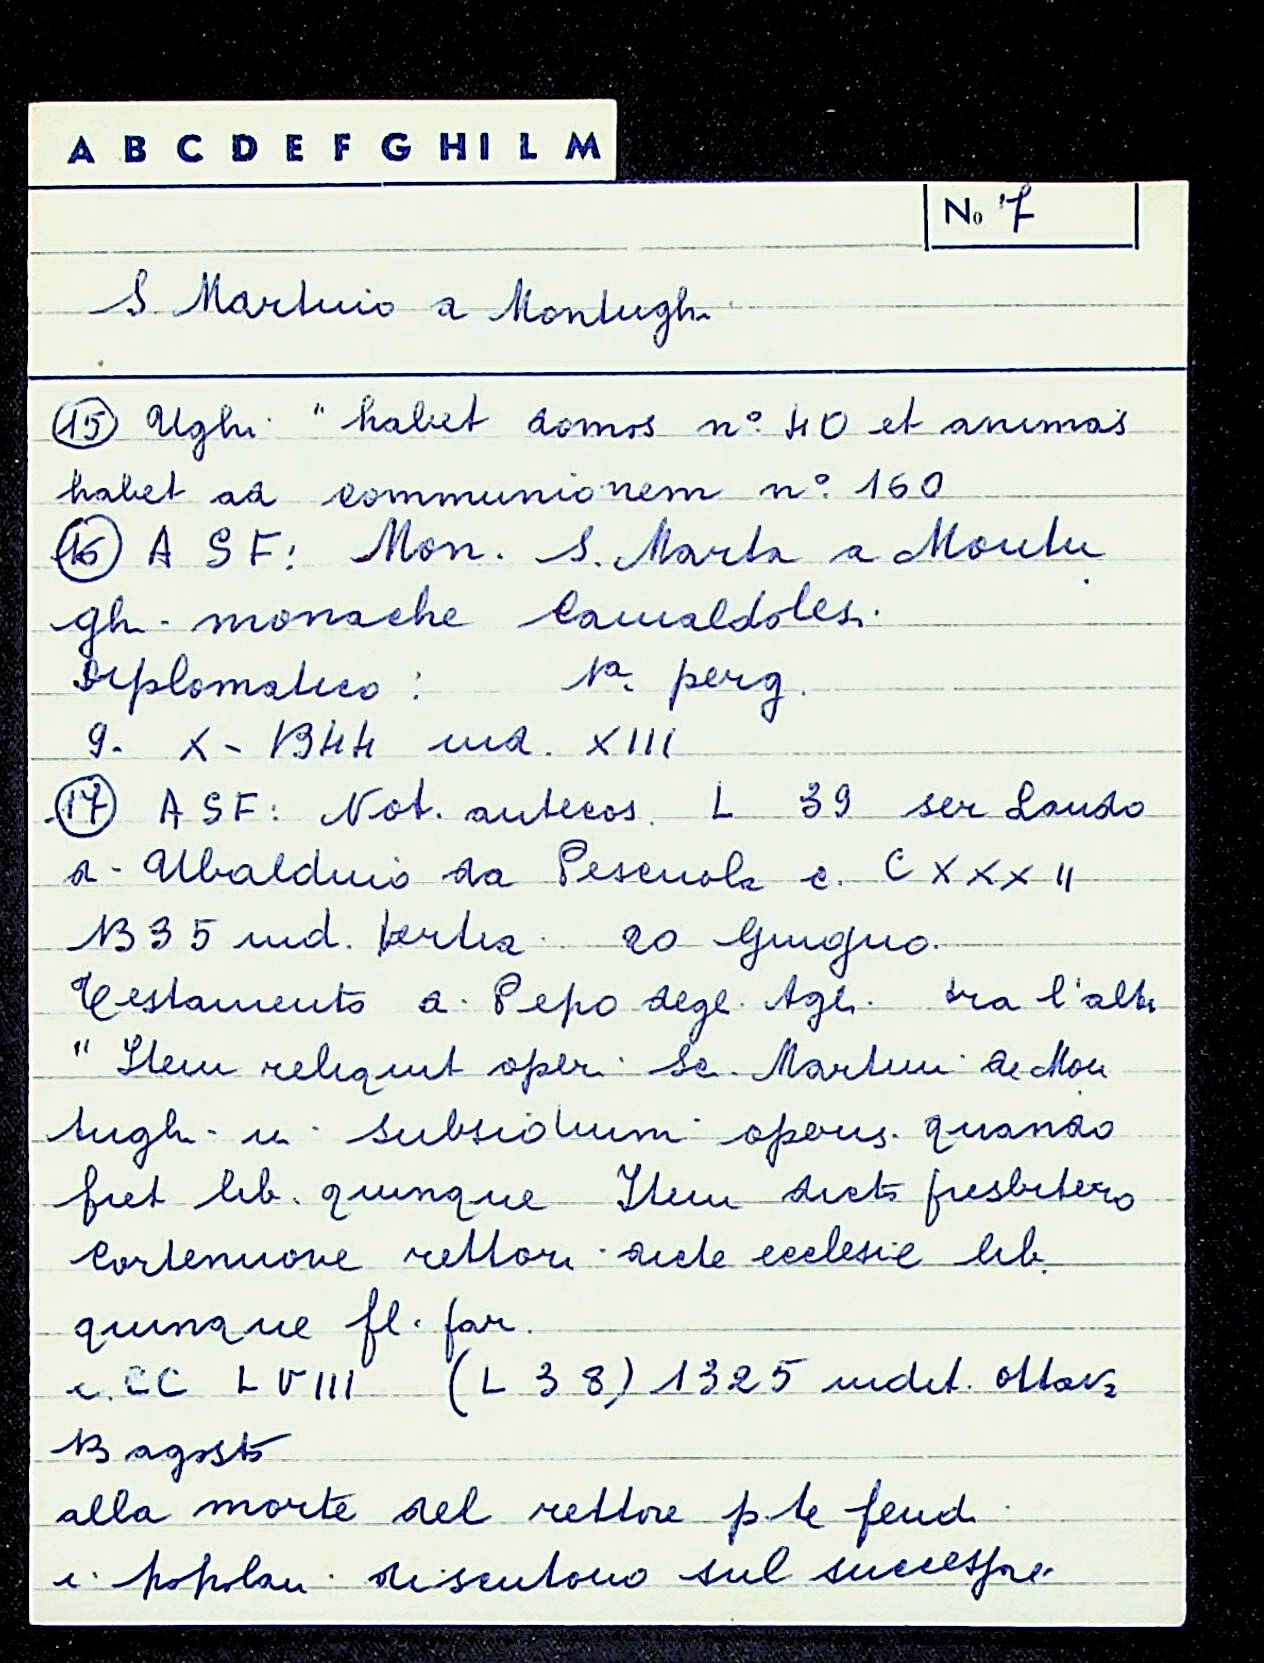 A B C D E F G H I L M
No 7
S. Martino a Montughi
(15) Ughi "habet domos n° 40 et animas
habet ad communionem n° 160
(16) A S F: Mon. S. Marta a Montu
ghi monache Camaldolesi
Diplomatico: 1a perg.
9. X - 1344 ind. XIII
(17) A S F: Not. antecos. L 39 ser Lando
di Ubaldino da Pesciola c. C X X X II
1335 ind. tertia 20 Giugno.
Testamento di Pepo degli Agli tra l'altro
"Item reliquit operi Sci. Martini de Mon
tughi in subsidium operis quando
fiet lib. quinque Item dicto presbitero
Cortenuove rettori dicte ecclesie lib.
quinque fl. par.
c. CC L V III (L 38) 1325 indit. ottava
13 agosto
alla morte del rettore p te feudi
i popolani discutono sul successore